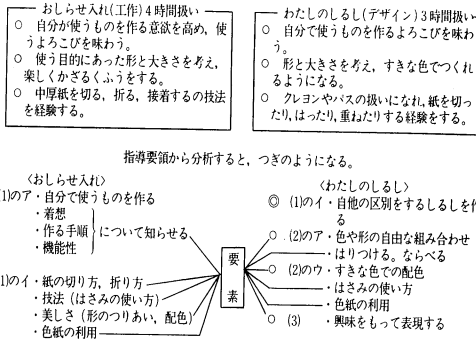 おしらせ入れ(工作)4時間扱い
○ 自分が使うものを作る意欲を高め，使
うよろこびを味わう。
○ 使う目的にあった形と大きさを考え，
楽しくかざるくふうをする。
○ 中厚紙を切る，折る，接着するの技法
を経験する。
わたしのしるし(デザイン)3時間扱い
○ 自分で使うものを作るよろこびを味わ
う。
○ 形と大きさを考え，すきな色でつくれ
るようになる。
○ クレヨンやパスの扱いになれ，紙を切っ
たり，はったり，重ねたりする経験をする。
指導要領から分析すると，つぎのようになる。
〈おしらせ入れ〉
(1)のア・自分で使うものを作る
・着想
・作る手順
・機能性
について知らせる
(1)のイ・紙の切り方，折り方
・技法（はさみの使い方）
・美しさ（形のつりあい，配色）
・色紙の利用
要素
〈わたしのしるし〉
◎ (1)のイ・自他の区別をするしるしを作
る
○ (2)のア・色や形の自由な組み合わせ
・はりつける。ならべる
○ (2)のウ・すきな色での配色
・はさみの使い方
・色紙の利用
○ (3) ・興味をもって表現する